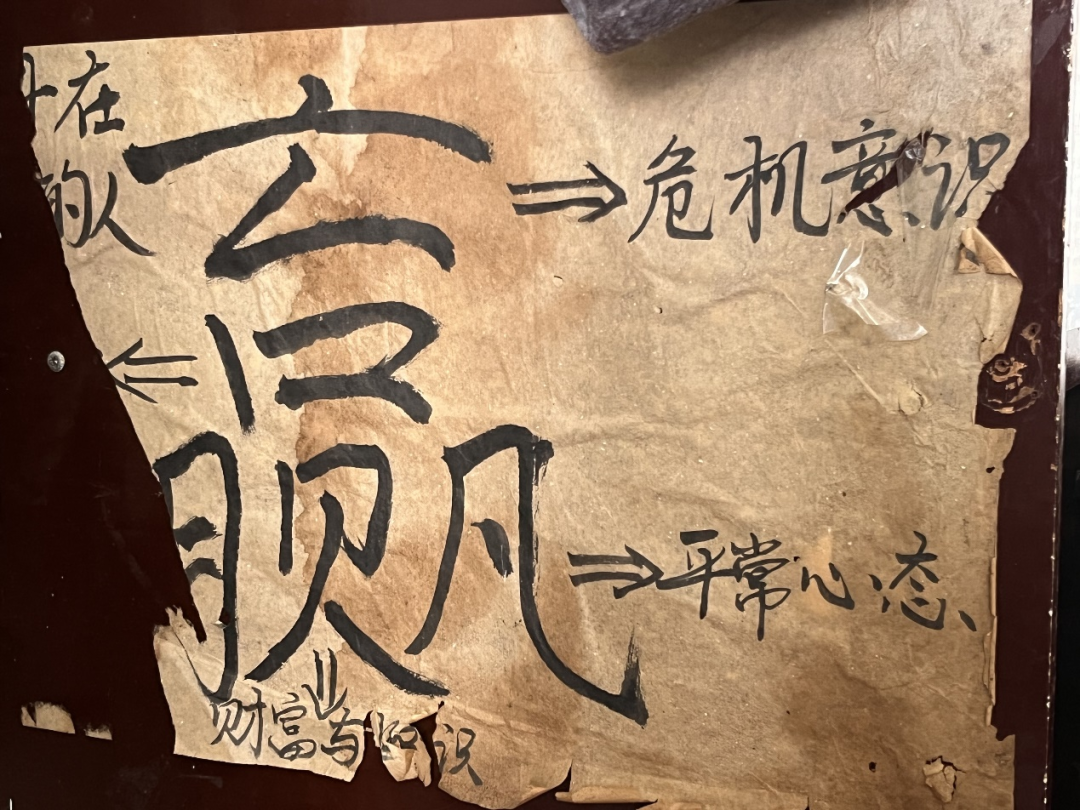 在
的人
赢
⇒危机意识
⇐
⇒平常心态
⇓
财富与知识